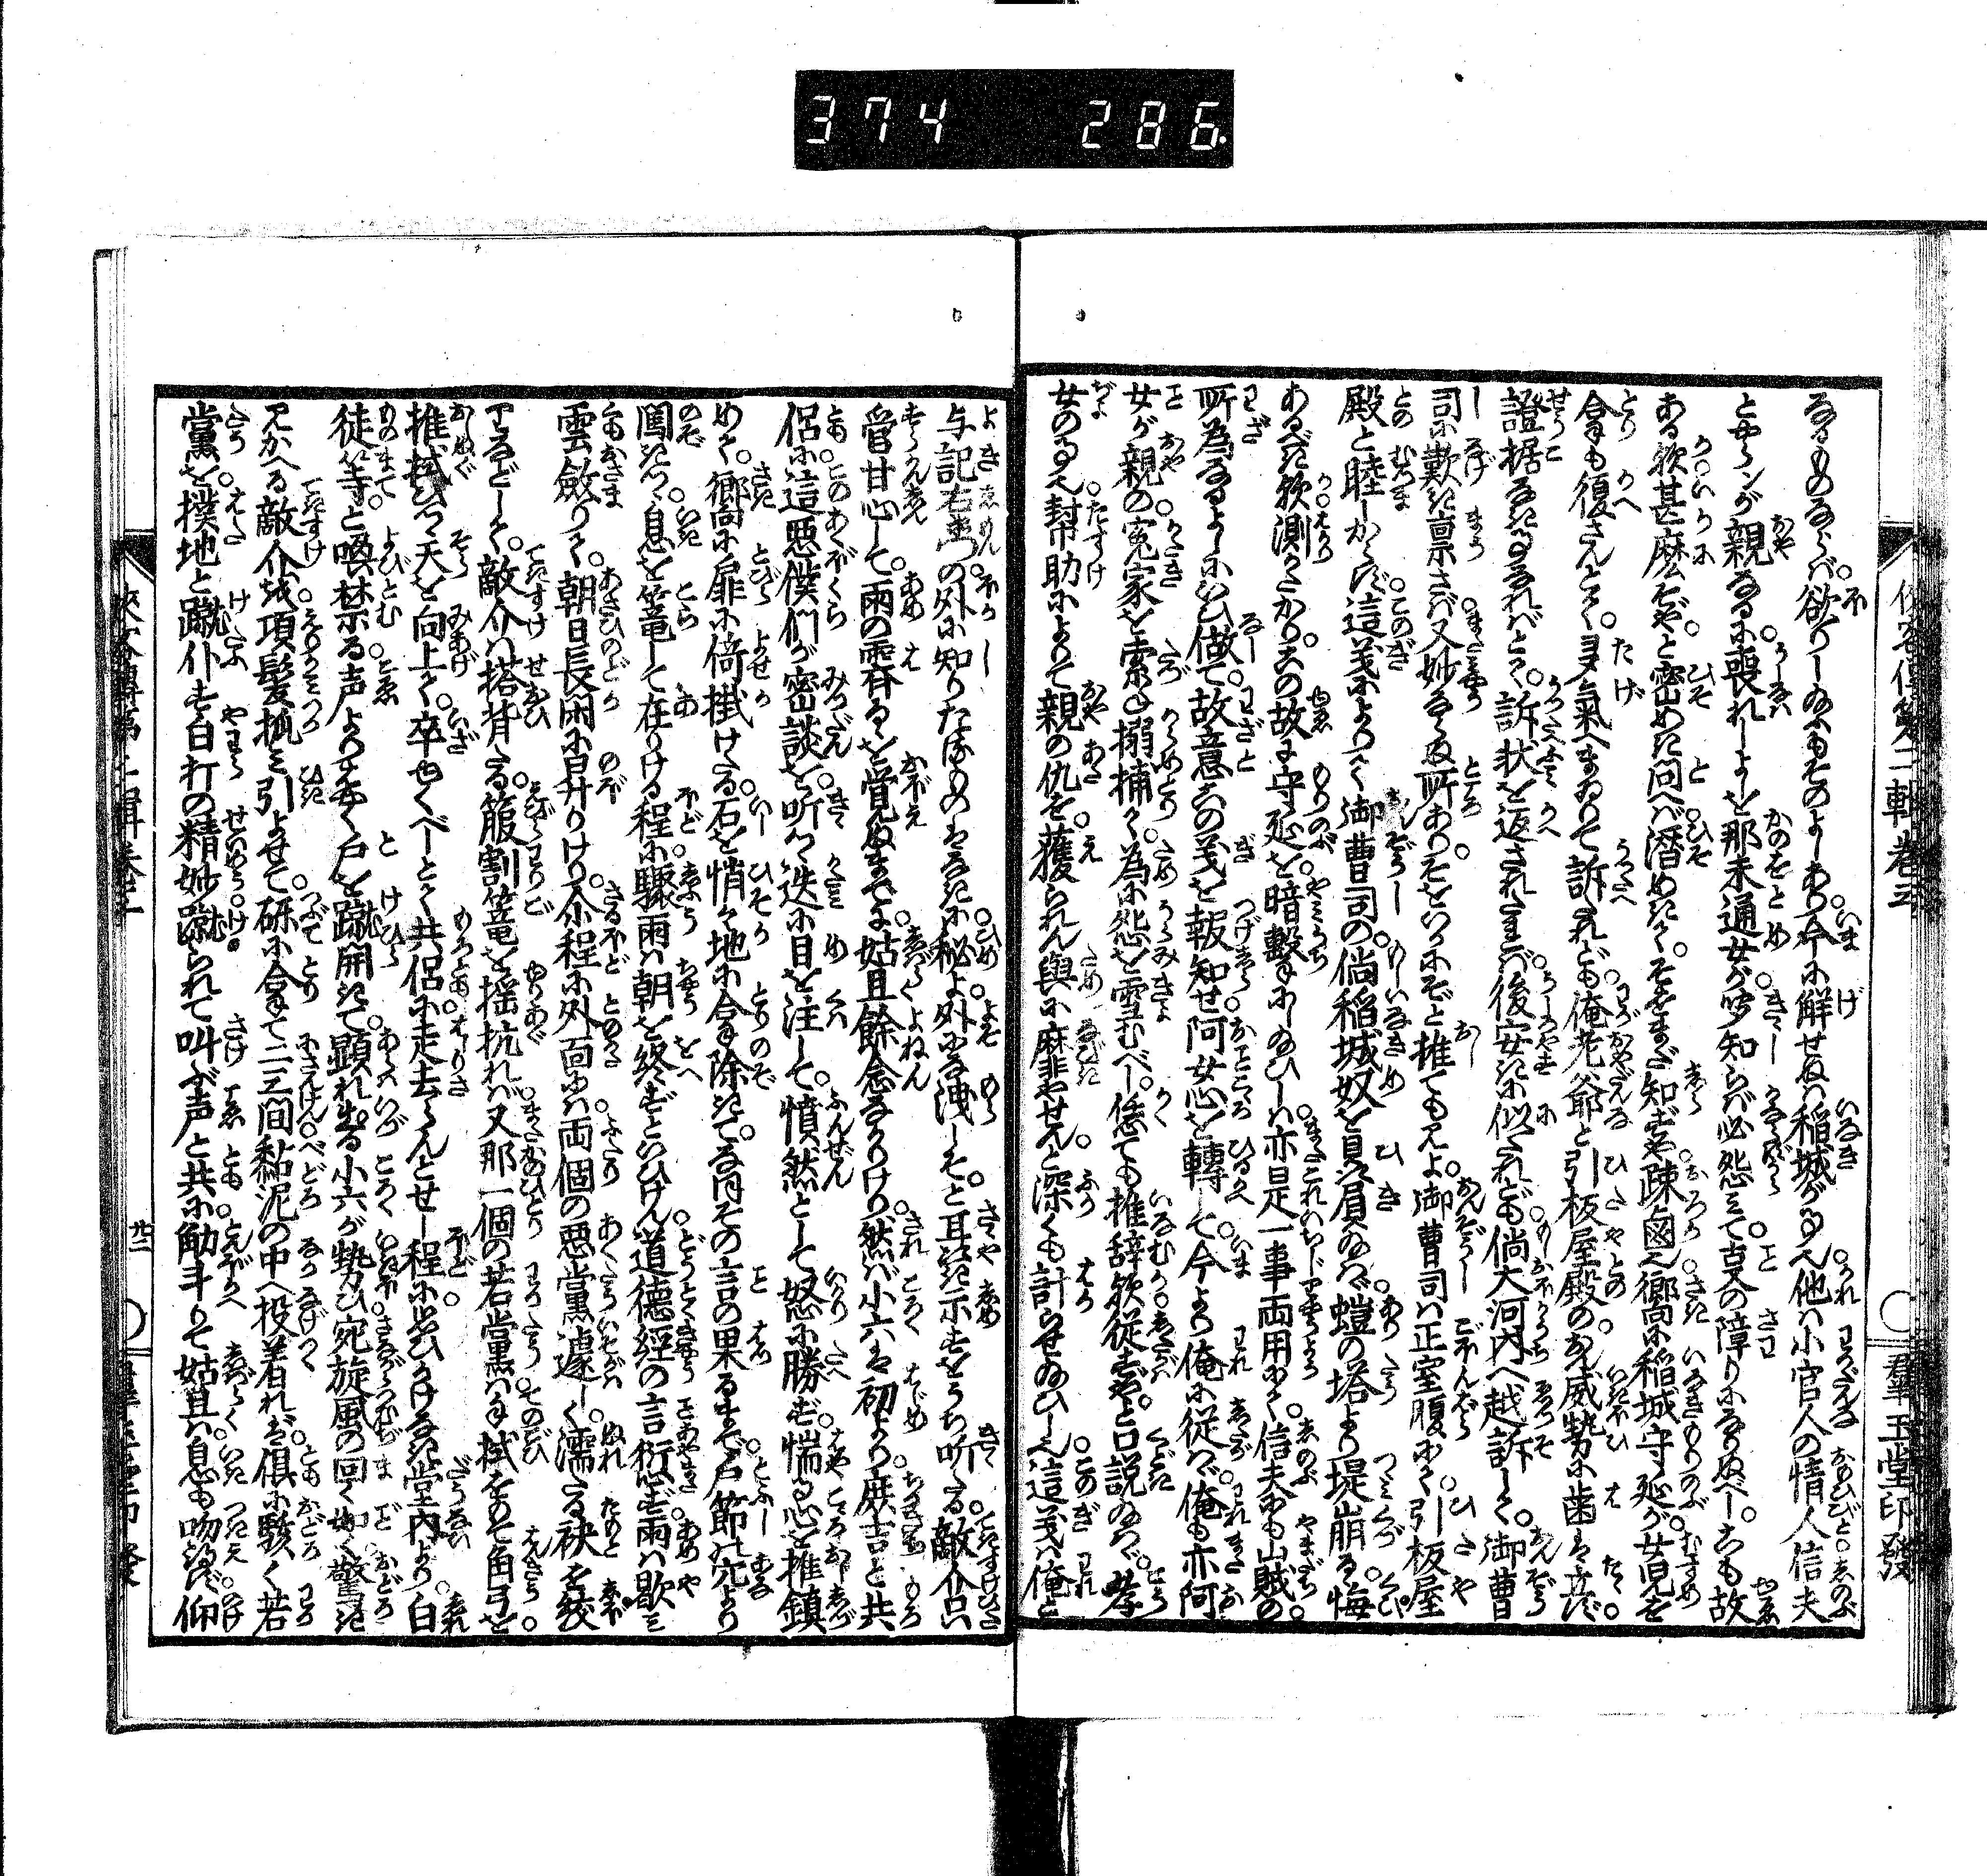 374 286
なるものならば。欲りし給ふもそのよしあり。今に解せぬは稲城が事。他は小官人の情人信夫
とやらンが親なるに。喪れしよしを那未通女が聞知らば必怨みて。事の障りになりぬべし。こも故
ある歟甚麼ぞや。と密めき問へば潜めきて。そをまだ知ずや疎鹵。嚮に稲城守延が女児を
拿も復さんとて。猛気へまゐりて訴れども。俺老爺と引板屋殿の。威勢に歯は立ず。
證据なき事なればとて。訴状を返されたれば後安きに似たれども。尚大河内へ越訴して。御曹
司に歎き禀さば又妙ならぬ所あり。そをいかにぞと推ても見よ。御曹司は正室腹にて。引板屋
殿と睦しからず。這義によりて御曹司の。尚稲城奴を贔負給はゞ。螘の塔より堤崩るゝ悔
あるべき歟測りかたかり。この故に守延を。暗撃にし給ひしは。亦是一事両用にて。信夫にも山賊の
所為なるよしにいひ做て。故意この義を報知せ。阿女心を轉して。今より俺に従はゞ。俺も亦阿
女が親の寃家を索ね。搦捕て。為に怨を雪むべし。恁ても推辞歟従ずや。と口説給はゞ。孝
女の事。幇助によりて親の仇を。獲られん與に靡やせん。と深くも計らせ給ひし。這義は俺と
俠客傳第二輯卷三
群玉堂印發
与記右衛門の外に知りたるものはなきに。秘よ外にな洩しそ。と耳語示すをうち听たる。敵介は
管甘心して。雨の霽るゝを覚ぬまでに。姑且餘念なかりけり。然ば小六は初より。庶吉と共
侶に。這悪僕們が密談を。听て迭に目を注して。憤然として怒に勝ず。惴る心を推鎮
めて。嚮に扉に倚掛けたる。石を悄々地に拿除きて。なほその言の果るまで。戸節の穴より
闖きつゝ。息を篭して在りける程に。驟雨は朝を終ずといひけん。道徳経の言愆ず。雨は歇み
雲斂りて。朝日長閑に昇りけり。介程に外面には。両個の悪黨遽しく。濡たる袂を絞
りなどして。敵介は搭背たる。箙割篭を揺抗れば。又那一個の若黨は。手拭をもて角弓を
推拭ひつゝ。天を向上て。卒ゆくべしとて共侶に。走去らんとせし程に。思ひがけなき堂内より。白
徒等と喚禁る声よりはやく。戸を蹴開きて。顕れ出る小六が勢ひ。宛旋風の回るが如く。驚き
見かへる敵介を。項髪抓み引よせて。礫に拿て二三間。黏泥の中へ投着れば。倶に駭く若
黨を。撲地と蹴仆す白打の精妙。蹴られて叫ぶ声と共に。觔斗りて姑且は。息も吻得ず仰
廿二